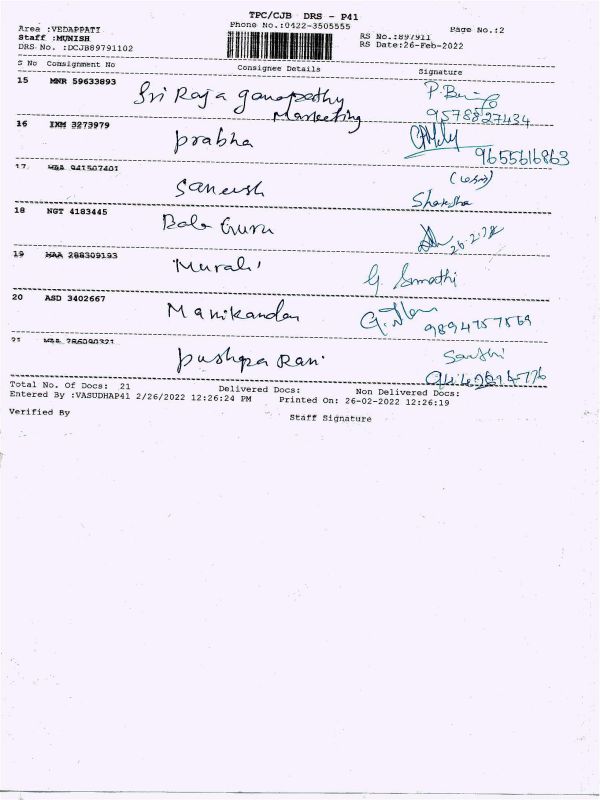 TPC/CJB DRS - P41
Area :VEDAPPATI Phone No.:0422-3505555 Page No.:2
Staff :MUNISH RS No.:897911
DRS No. :DCJB89791102 RS Date:26-Feb-2022
S No Consignment No Consignee Details Signature
15 MNR 59633893 Sri Raja ganapathy
Marketing 9578827434
16 IXM 3273979 prabha 9655616863
17 MAA 941507401 Sanersh
18 NGT 4183445 Bala Guru
19 MAA 288309193 'Murali' G Sumathi
20 ASD 3402667 Manikandan 9894757569
21 MAA 786090321 pushpa Rani Santhi
Total No. Of Docs: 21 Delivered Docs: Non Delivered Docs:
Entered By :VASUDHAP41 2/26/2022 12:26:24 PM Printed On: 26-02-2022 12:26:19
Verified By Staff Signature